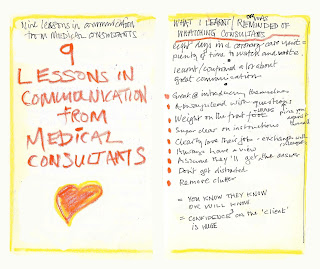 Nine lessons in communication
from MEDICAL CONSULTANTS
9
LESSONS IN
COMMUNICATION
FROM
MEDICAL
CONSULTANTS
WHAT I LEARNT/OR WAS REMINDED OF
WHATCHING CONSULTANTS
Eight days in a coronary care unit =
plenty of time to watch and
learnt/confirmed a lot about
great communication.
Great @ introducing themselves
Always lead with questions
Weight on the front foot
Super clear on instructions
Clearly love their job - exchange with colleagues
Always have a view
Assume they'll get the answer
Don't get distracted
Remove clutter
= YOU KNOW THEY KNOW
OR WILL KNOW
= CONFIDENCE of the 'client'
is HUGE